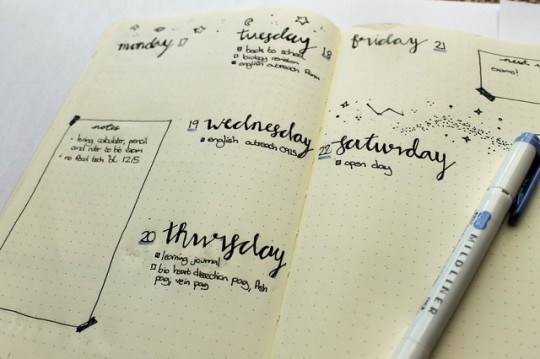 monday 17
tuesday 18
back to school
biology revision
english outreach
notes
bring calculator, pencil
and ruler to bio exam
no food tech DL 1215
19 wednesday
english outreach
20 thursday
learning journal
bio heart dissection pag, fish
pag, vein pag
friday 21
next
exams!
22 saturday
open day
MILDLINER